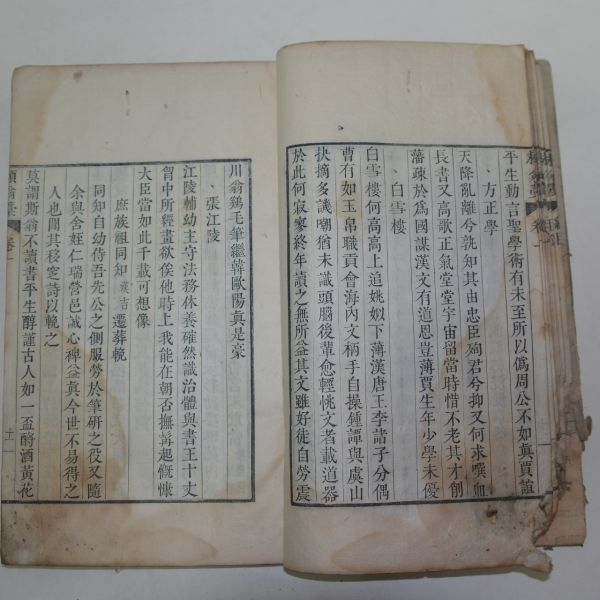 平生動言聖學術有未至所以僞周公不如眞賈誼
方正學
天降亂離兮孰知其由忠臣殉君兮抑又何求噀血
長書又高歌正氣堂堂宇宙留當時惜不老其才創
藩疎於爲國謀漢文有道恩豈薄賈生年少學未優
白雪樓
白雪樓何高高上追姚姒下薄漢唐王李諸子分偶
曹有如玉帛職貢會海內文柄手自操鍾譚與虞山
抉摘多譏嘲猶未識頭腦後輩愈輕恌文者載道器
於此何寂寥終年讀之無所益其文雖好徒自勞震
川翁鷄毛筆繼韓歐陽眞是豪
張江陵
江陵輔幼主守法務休養確然識治體與書王十丈
胷中所經畫欲俟他時上我能在朝否撫髯起慨慷
大臣當如此千載可想像
庶族祖同知 漢吉 遷葬輓
同知自幼侍吾先公之側服勞於筆硏之役又隨
余與含姪仁瑞營邑誠心裨益眞今世不易得之
人也聞其移窆詩以輓之
莫謂斯翁不讀書平生醇謹古人如一盃酹酒黃花
卷一
十一